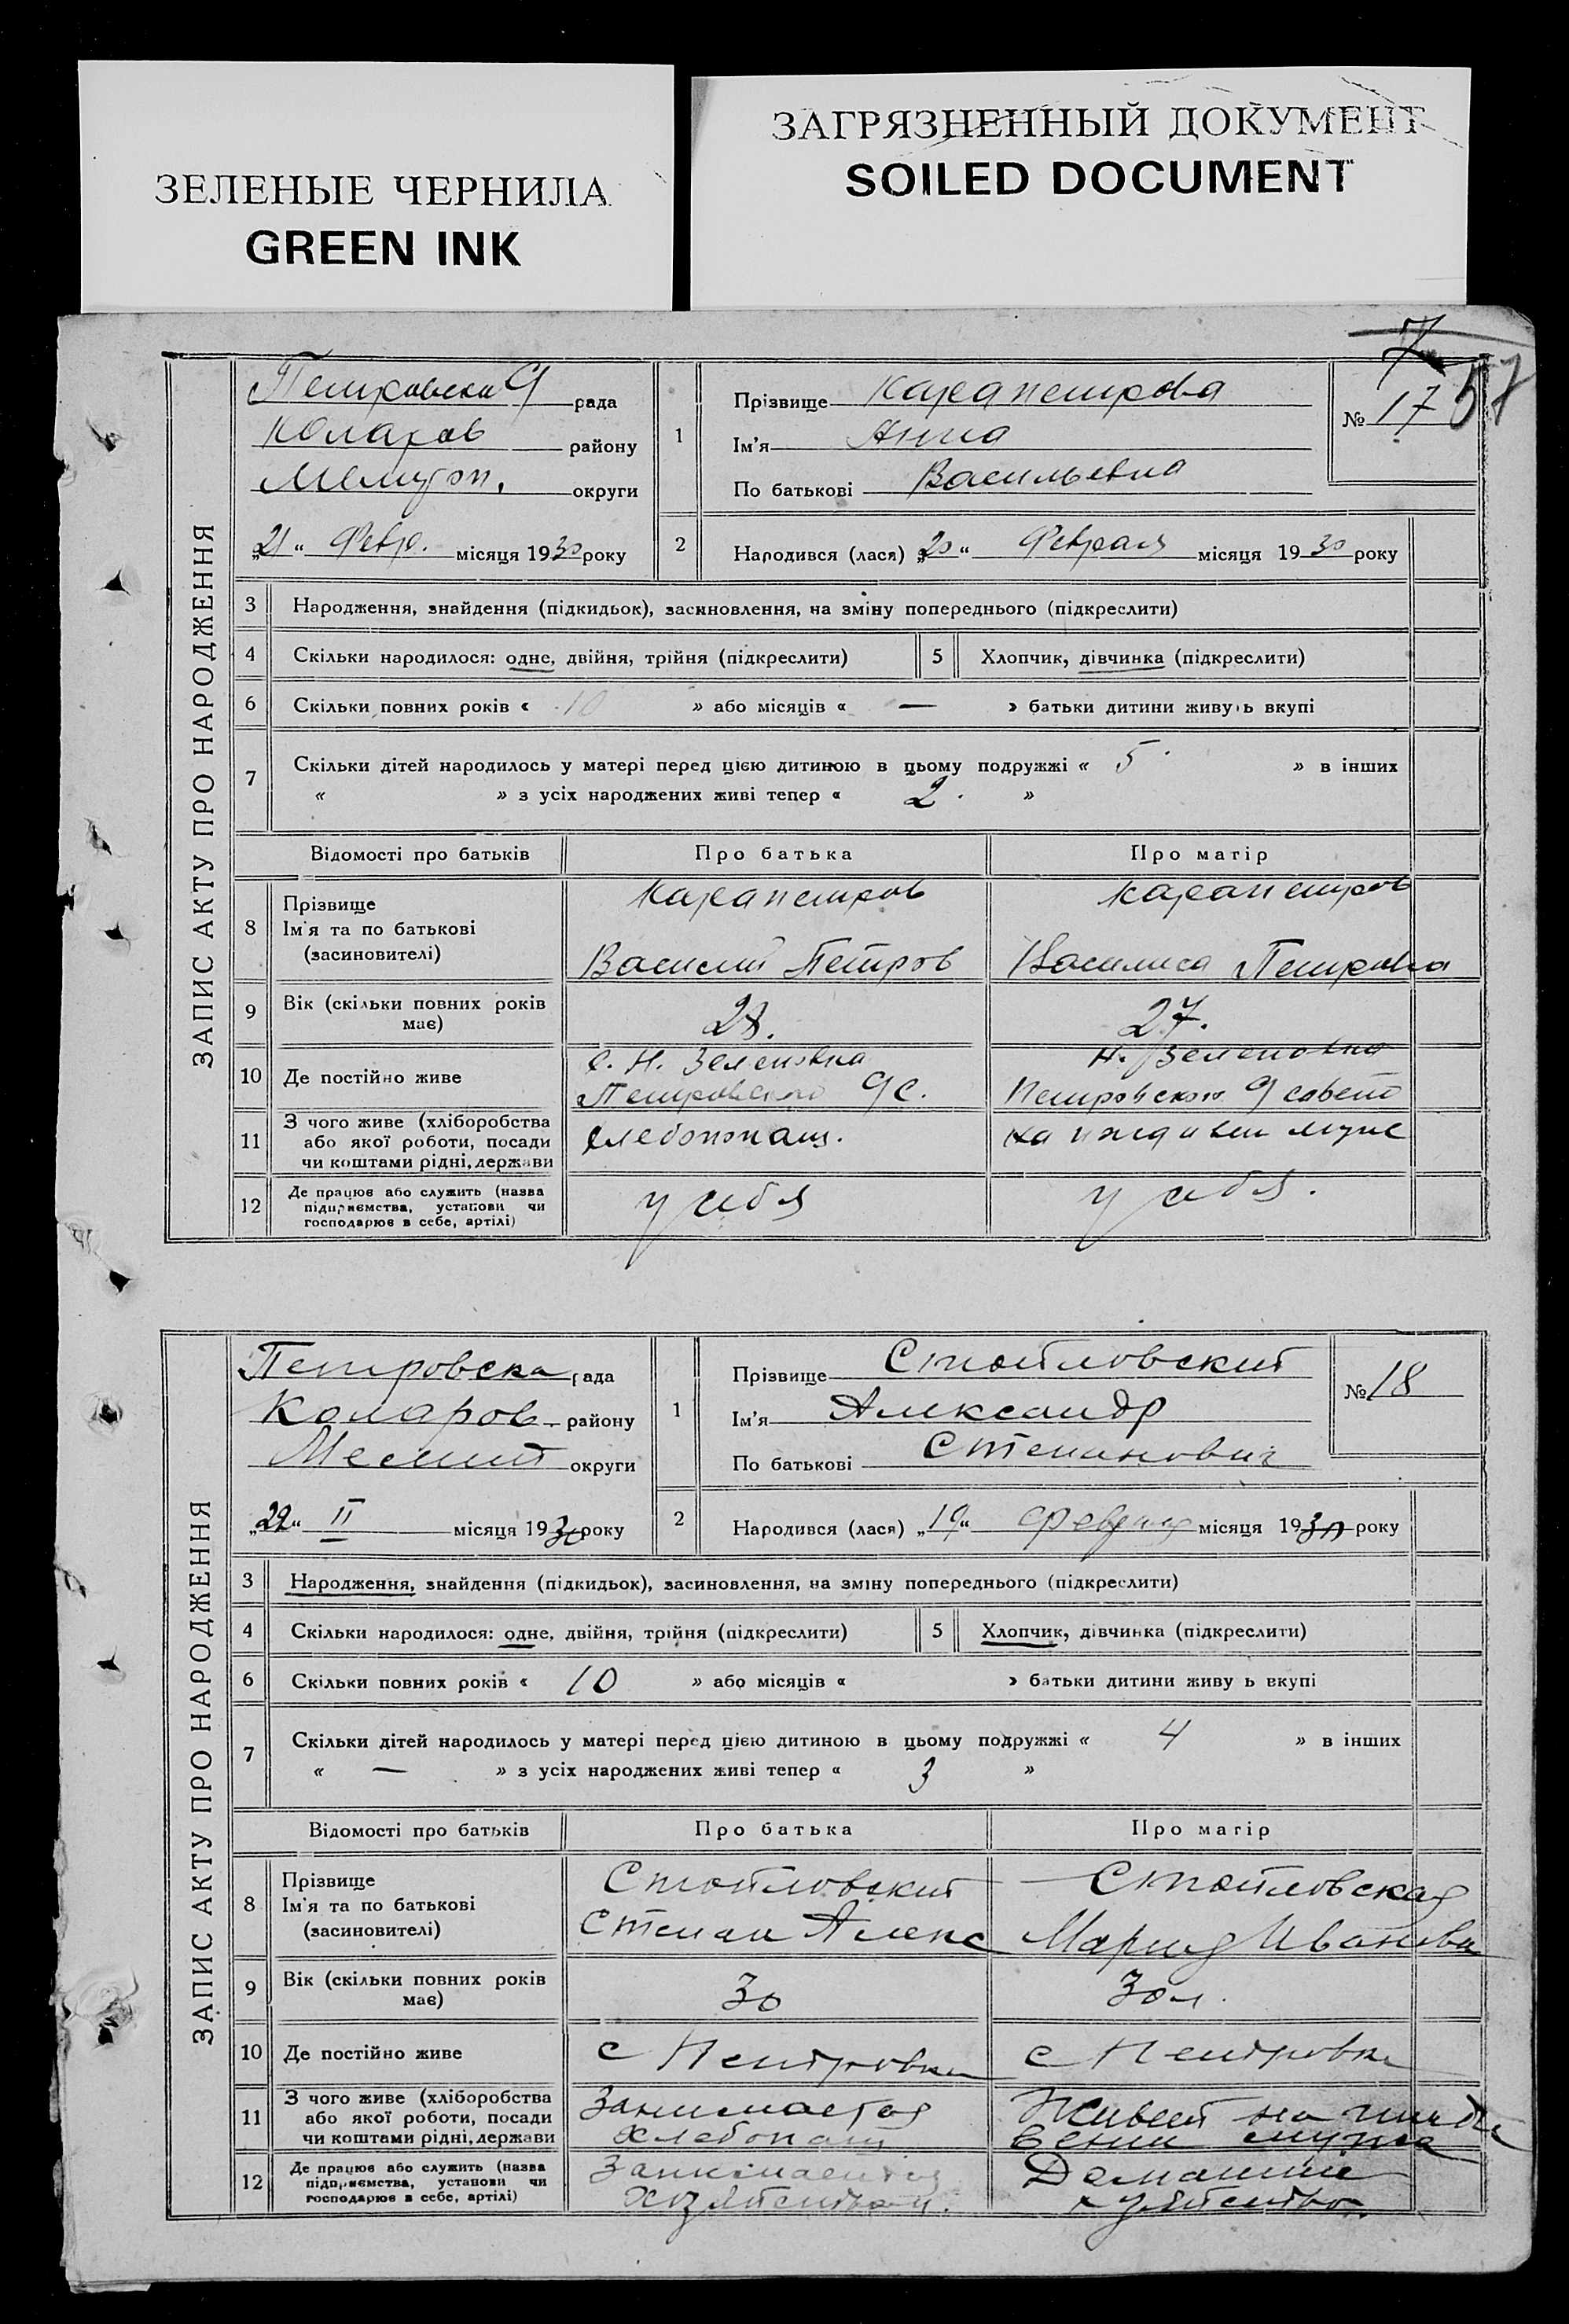 ЗЕЛЕНЫЕ ЧЕРНИЛА
GREEN INK
ЗАГРЯЗНЕННЫЙ ДОКУМЕНТ
SOILED DOCUMENT
7
57
ЗАПИС АКТУ ПРО НАРОДЖЕННЯ
рада
Коларов району
округи
„21“ Февр. місяця 1930 року
1
Прізвище Карапетрова
Ім'я Анна
По батькові Васильевна
№ 17
2
Народився (лася) „20“ Февраля місяця 1930 року
3 Народження, знайдення (підкидьок), засиновлення, на зміну попереднього (підкреслити)
4 Скільки народилося: одне, двійня, трійня (підкреслити) 5 Хлопчик, дівчинка (підкреслити)
6 Скільки повних років « 10 » або місяців « — » батьки дитини живуть вкупі
7 Скільки дітей народилось у матері перед цією дитиною в цьому подружжі « 5 » в інших
« » з усіх народжених живі тепер « 2 »
Відомості про батьків Про батька Про матір
8 Прізвище
Ім'я та по батькові
(засиновителі)
Карапетров
Василий Петров
Карапетров
Василиса Петровна
9 Вік (скільки повних років має) 28. 27.
10 Де постійно живе
с. Н. Зеленовка
Петровского 9 с.
Н. Зеленовка
Петровского 9 совето
11 З чого живе (хліборобства
або якої роботи, посади
чи коштами рідні, держави
хлебопаш.
на иждивен муже
12 Де працює або служить (назва
підприємства, установи чи
господарює в себе, артілі)
у себя
у себя.
ЗАПИС АКТУ ПРО НАРОДЖЕННЯ
Петровска рада
Коларов району
округи
„22“ II місяця 1930 року
1
Прізвище Стойловский
Ім'я Александр
По батькові Степанович
№ 18
2
Народився (лася) „19“ февраля місяця 1930 року
3 Народження, знайдення (підкидьок), засиновлення, на зміну попереднього (підкреслити)
4 Скільки народилося: одне, двійня, трійня (підкреслити) 5 Хлопчик, дівчинка (підкреслити)
6 Скільки повних років « 10 » або місяців « » батьки дитини живу ь вкупі
7 Скільки дітей народилось у матері перед цією дитиною в цьому подружжі « 4 » в інших
« — » з усіх народжених живі тепер « 3 »
Відомості про батьків Про батька Про матір
8 Прізвище
Ім'я та по батькові
(засиновителі)
Стойловский
Степан Алекс
Стойловская
Мария Иванвн
9 Вік (скільки повних років має) 30 30 л.
10 Де постійно живе с Петровка с Петровка
11 З чого живе (хліборобства
або якої роботи, посади
чи коштами рідні, держави
Занимается
хлебопаш
Живет на иждe
вении мужа
12 Де працює або служить (назва
підприємства, установи чи
господарює в себе, артілі)
Занимается
хозяйством.
Домашние
хозяйство.